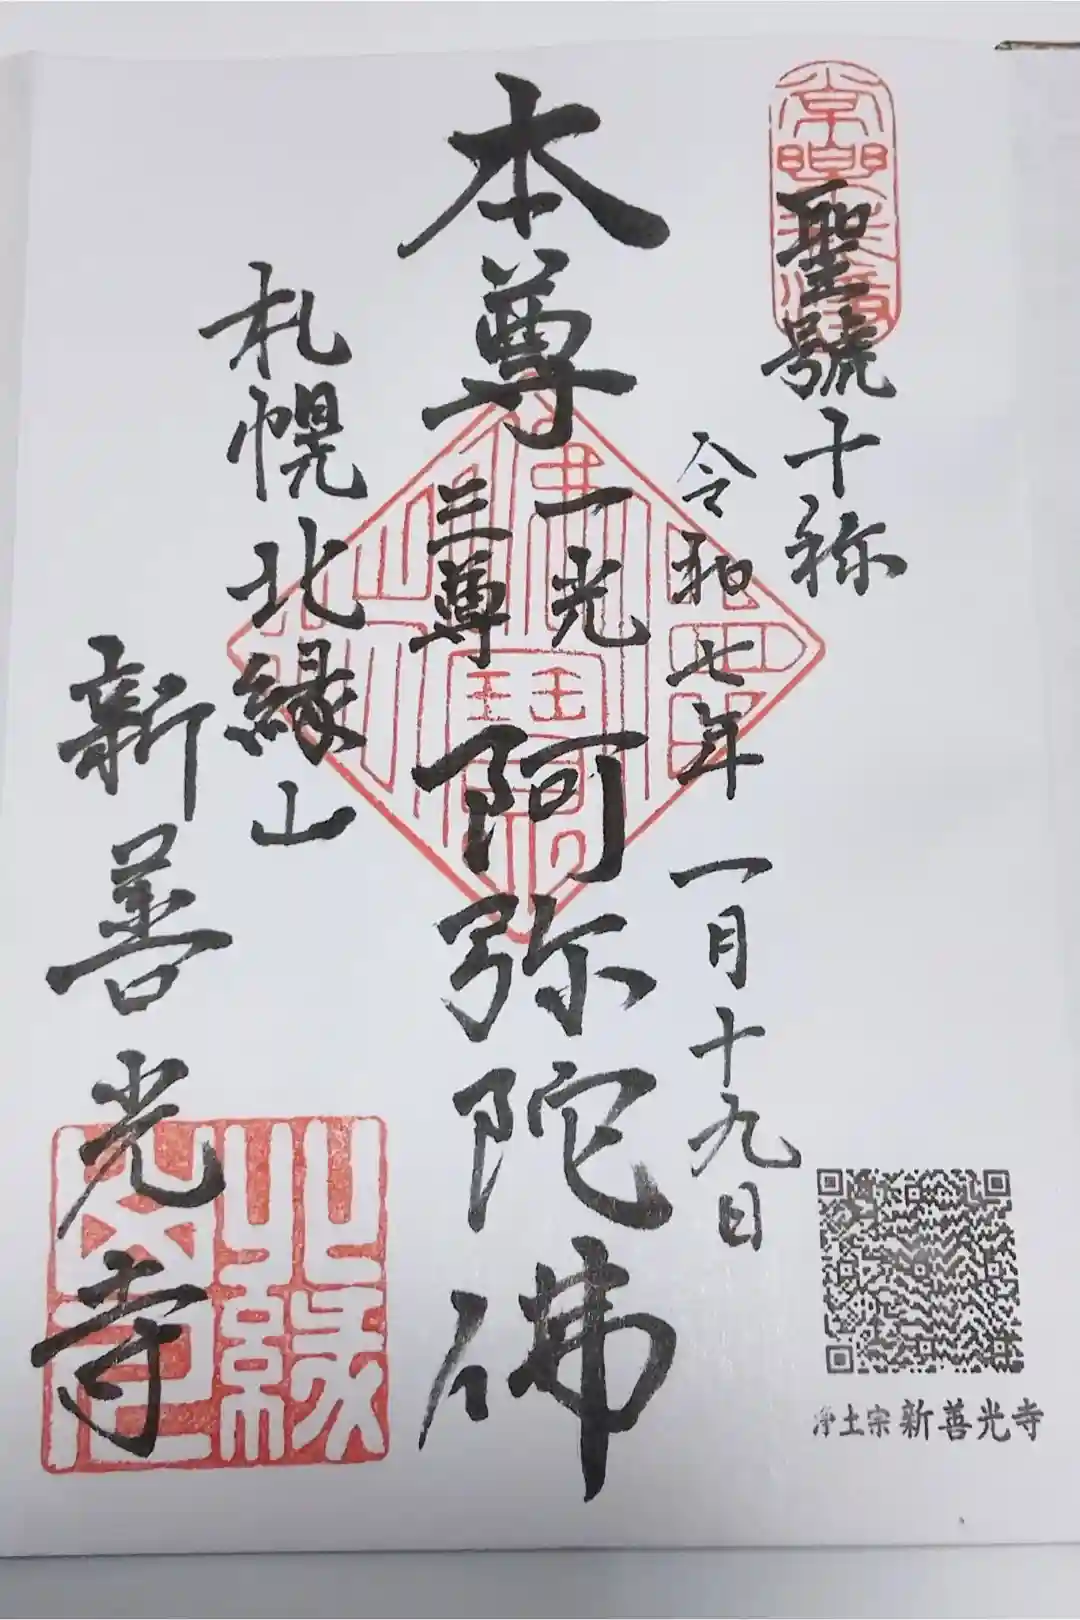 聖號十称
令和七年 一月十九日
本尊 一光三尊 阿弥陀佛
札幌北縁山
新善光寺
北縁山
浄土宗 新善光寺